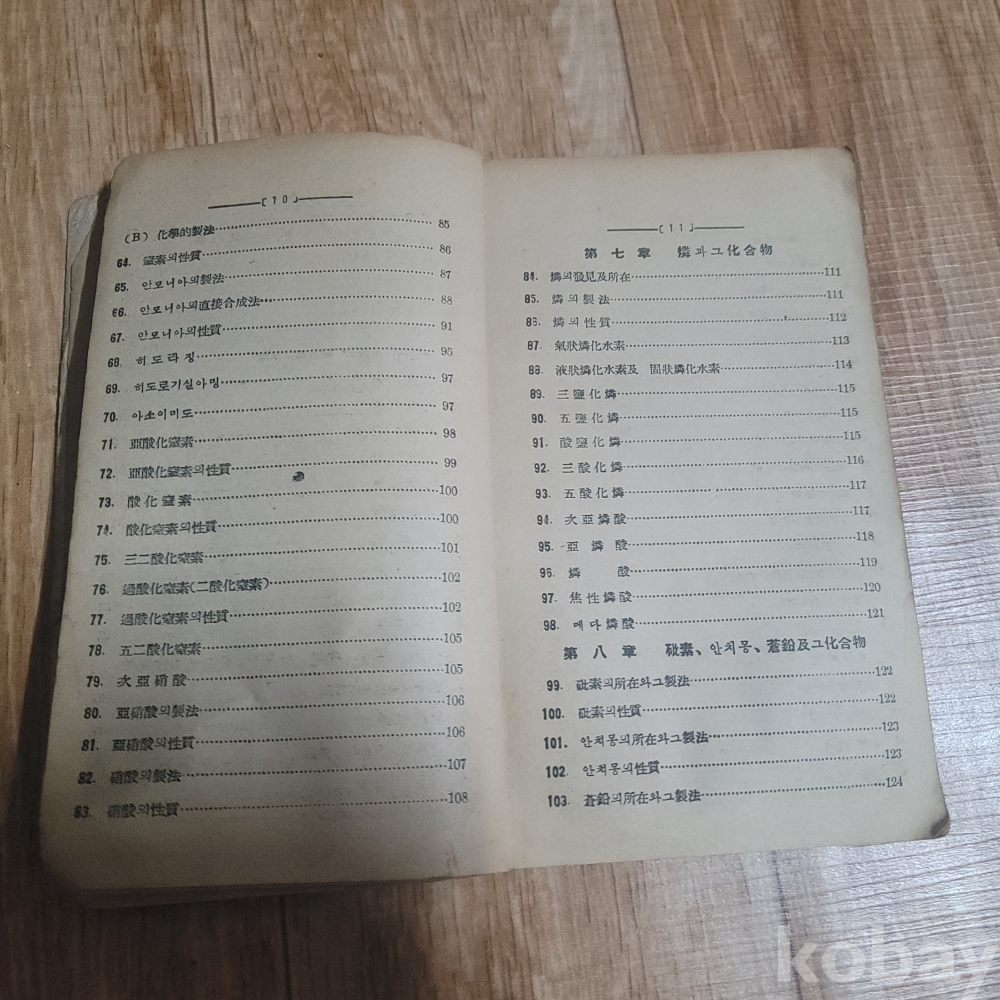 〔10〕
(B) 化學的製法 85
64. 窒素의性質 86
65. 안모니아의製法 87
66. 안모니아의直接合成法 88
67. 안모니아의性質 91
68. 히도라징 95
69. 히도로기실아밍 97
70. 아소이미도 97
71. 亞酸化窒素 98
72. 亞酸化窒素의性質 99
73. 酸化窒素 100
74. 酸化窒素의性質 100
75. 三二酸化窒素 101
76. 過酸化窒素(二酸化窒素) 102
77. 過酸化窒素의性質 102
78. 五二酸化窒素 105
79. 次亞硝酸 105
80. 亞硝酸의製法 106
81. 亞硝酸의性質 106
82. 硝酸의製法 107
83. 硝酸의性質 108
〔11〕
第七章 燐과그化合物
84. 燐의發見及所在 111
85. 燐의製法 111
86. 燐의性質 112
87. 氣狀燐化水素 113
88. 液狀燐化水素及 固狀燐化水素 114
89. 三鹽化燐 115
90. 五鹽化燐 115
91. 酸鹽化燐 115
92. 三酸化燐 116
93. 五酸化燐 117
94. 次亞燐酸 117
95. 亞燐酸 118
96. 燐酸 119
97. 焦性燐酸 120
98. 메다燐酸 121
第八章 砒素、안치몽、蒼鉛及그化合物
99. 砒素의所在와그製法 122
100. 砒素의性質 122
101. 안치몽의所在와그製法 123
102. 안치몽의性質 123
103. 蒼鉛의所在와그製法 124
kobay